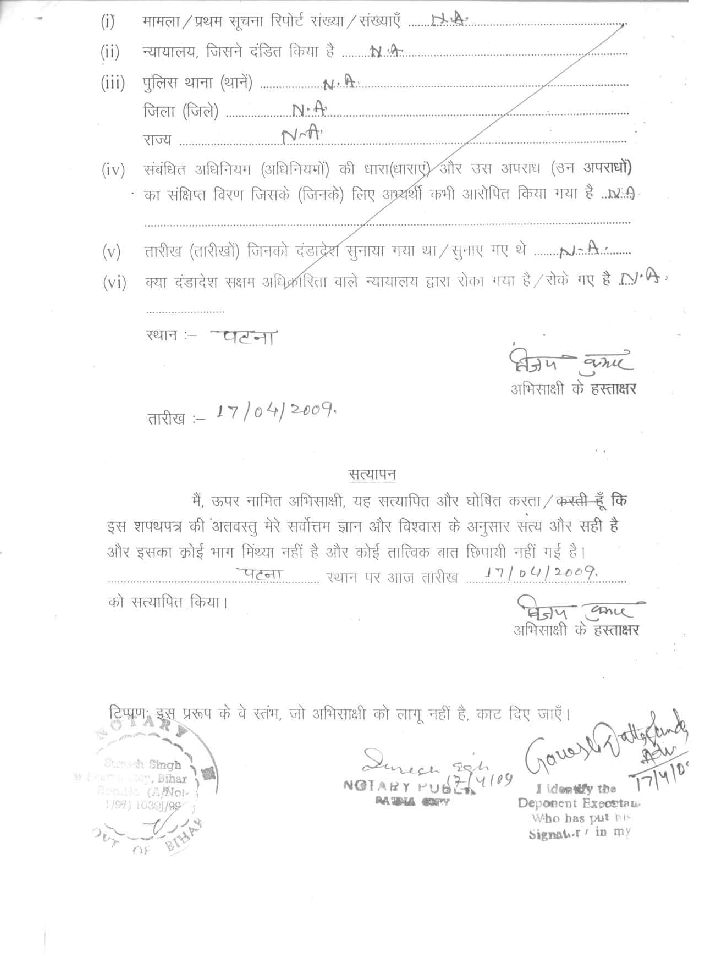 (i) मामला/प्रथम सूचना रिपोर्ट संख्या/संख्याएँ ..... N.A.
(ii) न्यायालय, जिसने दंडित किया है ..... N.A.
(iii) पुलिस थाना (थानें) ..... N.A.
जिला (जिले) ..... N.A.
राज्य ..... N.A.
(iv) संबंधित अधिनियम (अधिनियमों) की धारा(धाराएं) और उस अपराध (उन अपराधों)
का संक्षिप्त विरण जिसके (जिनके) लिए अभ्यर्थी कभी आरोपित किया गया है ..N.A.
(v) तारीख (तारीखों) जिनको दंडादेश सुनाया गया था/सुनाए गए थे ..... N.A.
(vi) क्या दंडादेश सक्षम अधिकारिता वाले न्यायालय द्वारा रोका गया है/रोके गए है N.A.
स्थान :– पटना
विजय कुमार
अभिसाक्षी के हस्ताक्षर
तारीख :– 17/04/2009.
सत्यापन
मैं, ऊपर नामित अभिसाक्षी, यह सत्यापित और घोषित करता/करती हूँ कि
इस शपथपत्र की अतवस्तु मेरे सर्वोत्तम ज्ञान और विश्वास के अनुसार संत्य और सही है
और इसका कोई भाग मिथ्या नहीं है और कोई तात्विक बात छिपायी नहीं गई है।
..... पटना ..... स्थान पर आज तारीख ..... 17/04/2009.
को सत्यापित किया।
विजय कुमार
अभिसाक्षी के हस्ताक्षर
टिप्पण: इस प्ररूप के वे स्तंभ, जो अभिसाक्षी को लागू नहीं है, काट दिए जाएँ।
NOTARY
Suresh Singh
Bihar
OUT OF BIHAR
Suresh Singh
17/4/09
NOTARY PUBLIC
PATNA
Adv
17/4/0
I identify the
Deponent
Who has put his
in my